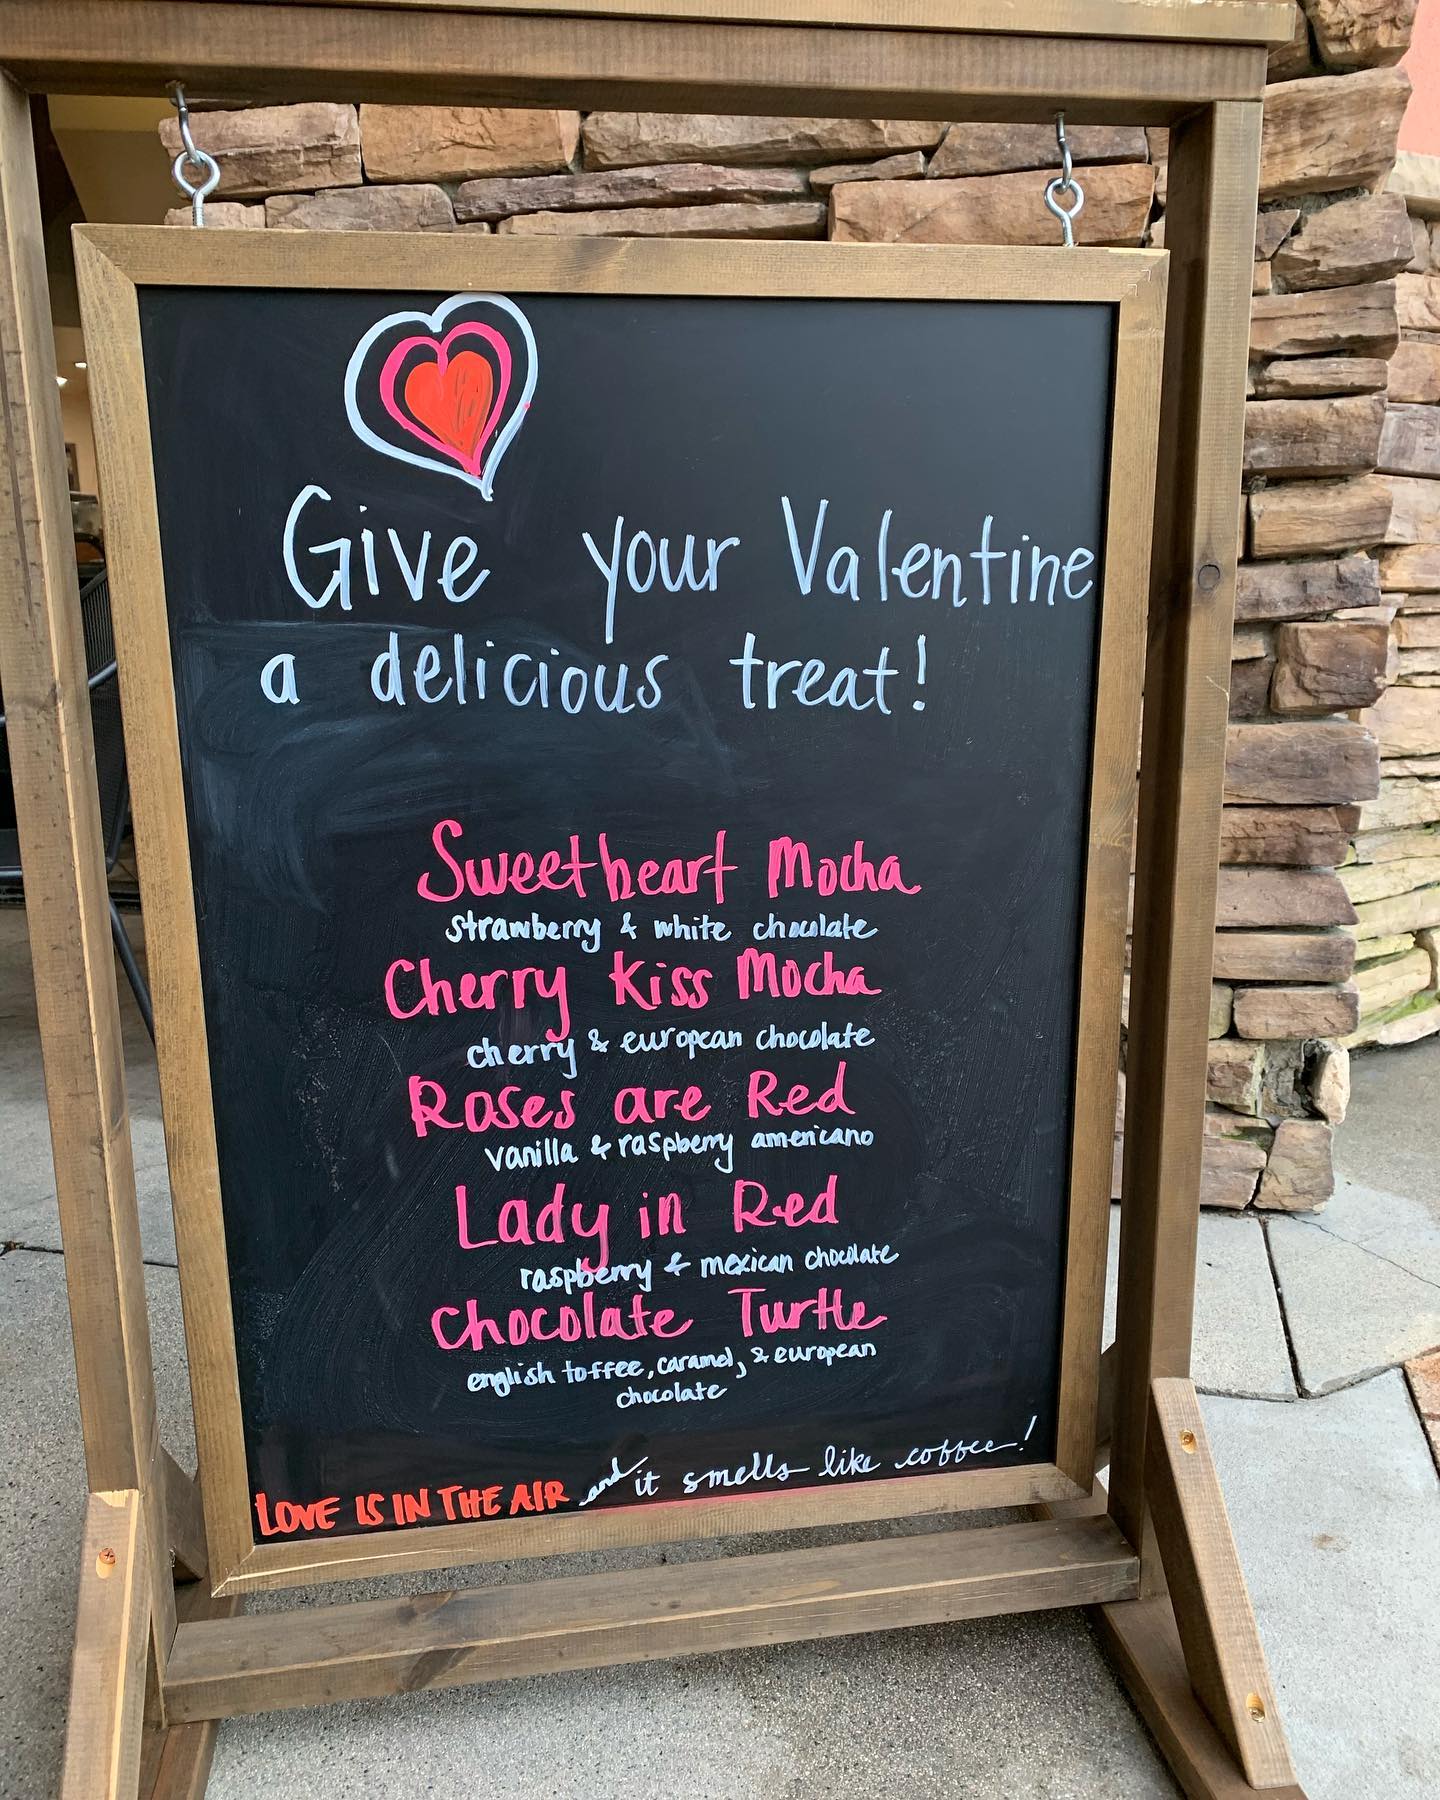 Give your Valentine
a delicious treat!
Sweetheart Mocha
strawberry & white chocolate
Cherry Kiss Mocha
cherry & european chocolate
Roses are Red
vanilla & raspberry americano
Lady in Red
raspberry & mexican chocolate
Chocolate Turtle
english toffee, caramel, & european
chocolate
LOVE IS IN THE AIR and it smells like coffee!